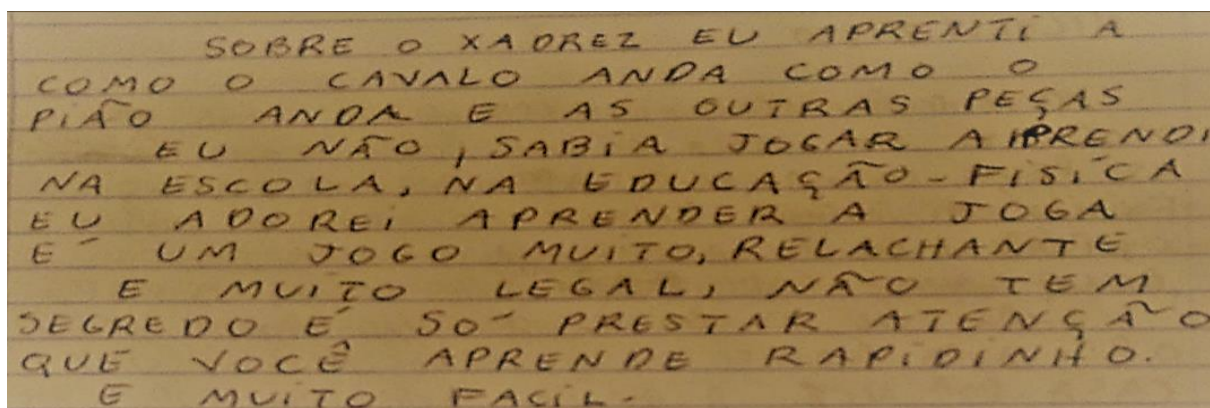 SOBRE O XADREZ EU APRENTI A
COMO O CAVALO ANDA COMO O
PIÃO ANDA E AS OUTRAS PEÇAS
EU NÃO, SABIA JOGAR APRENDI
NA ESCOLA, NA EDUCAÇÃO-FISÍCA
EU ADOREI APRENDER A JOGA
É UM JOGO MUITO, RELACHANTE
E MUITO LEGAL, NÃO TEM
SEGREDO É SÓ PRESTAR ATENÇÃO
QUE VOCÊ APRENDE RAPIDINHO.
E MUITO FACIL.